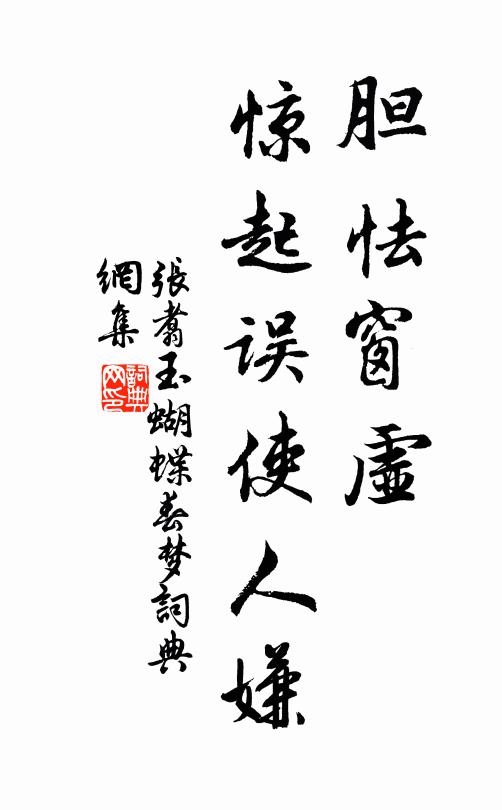 胆怯窗虚
惊起误使人嫌
張翥玉蝴蝶春梦詞典
網集
詞典
网印